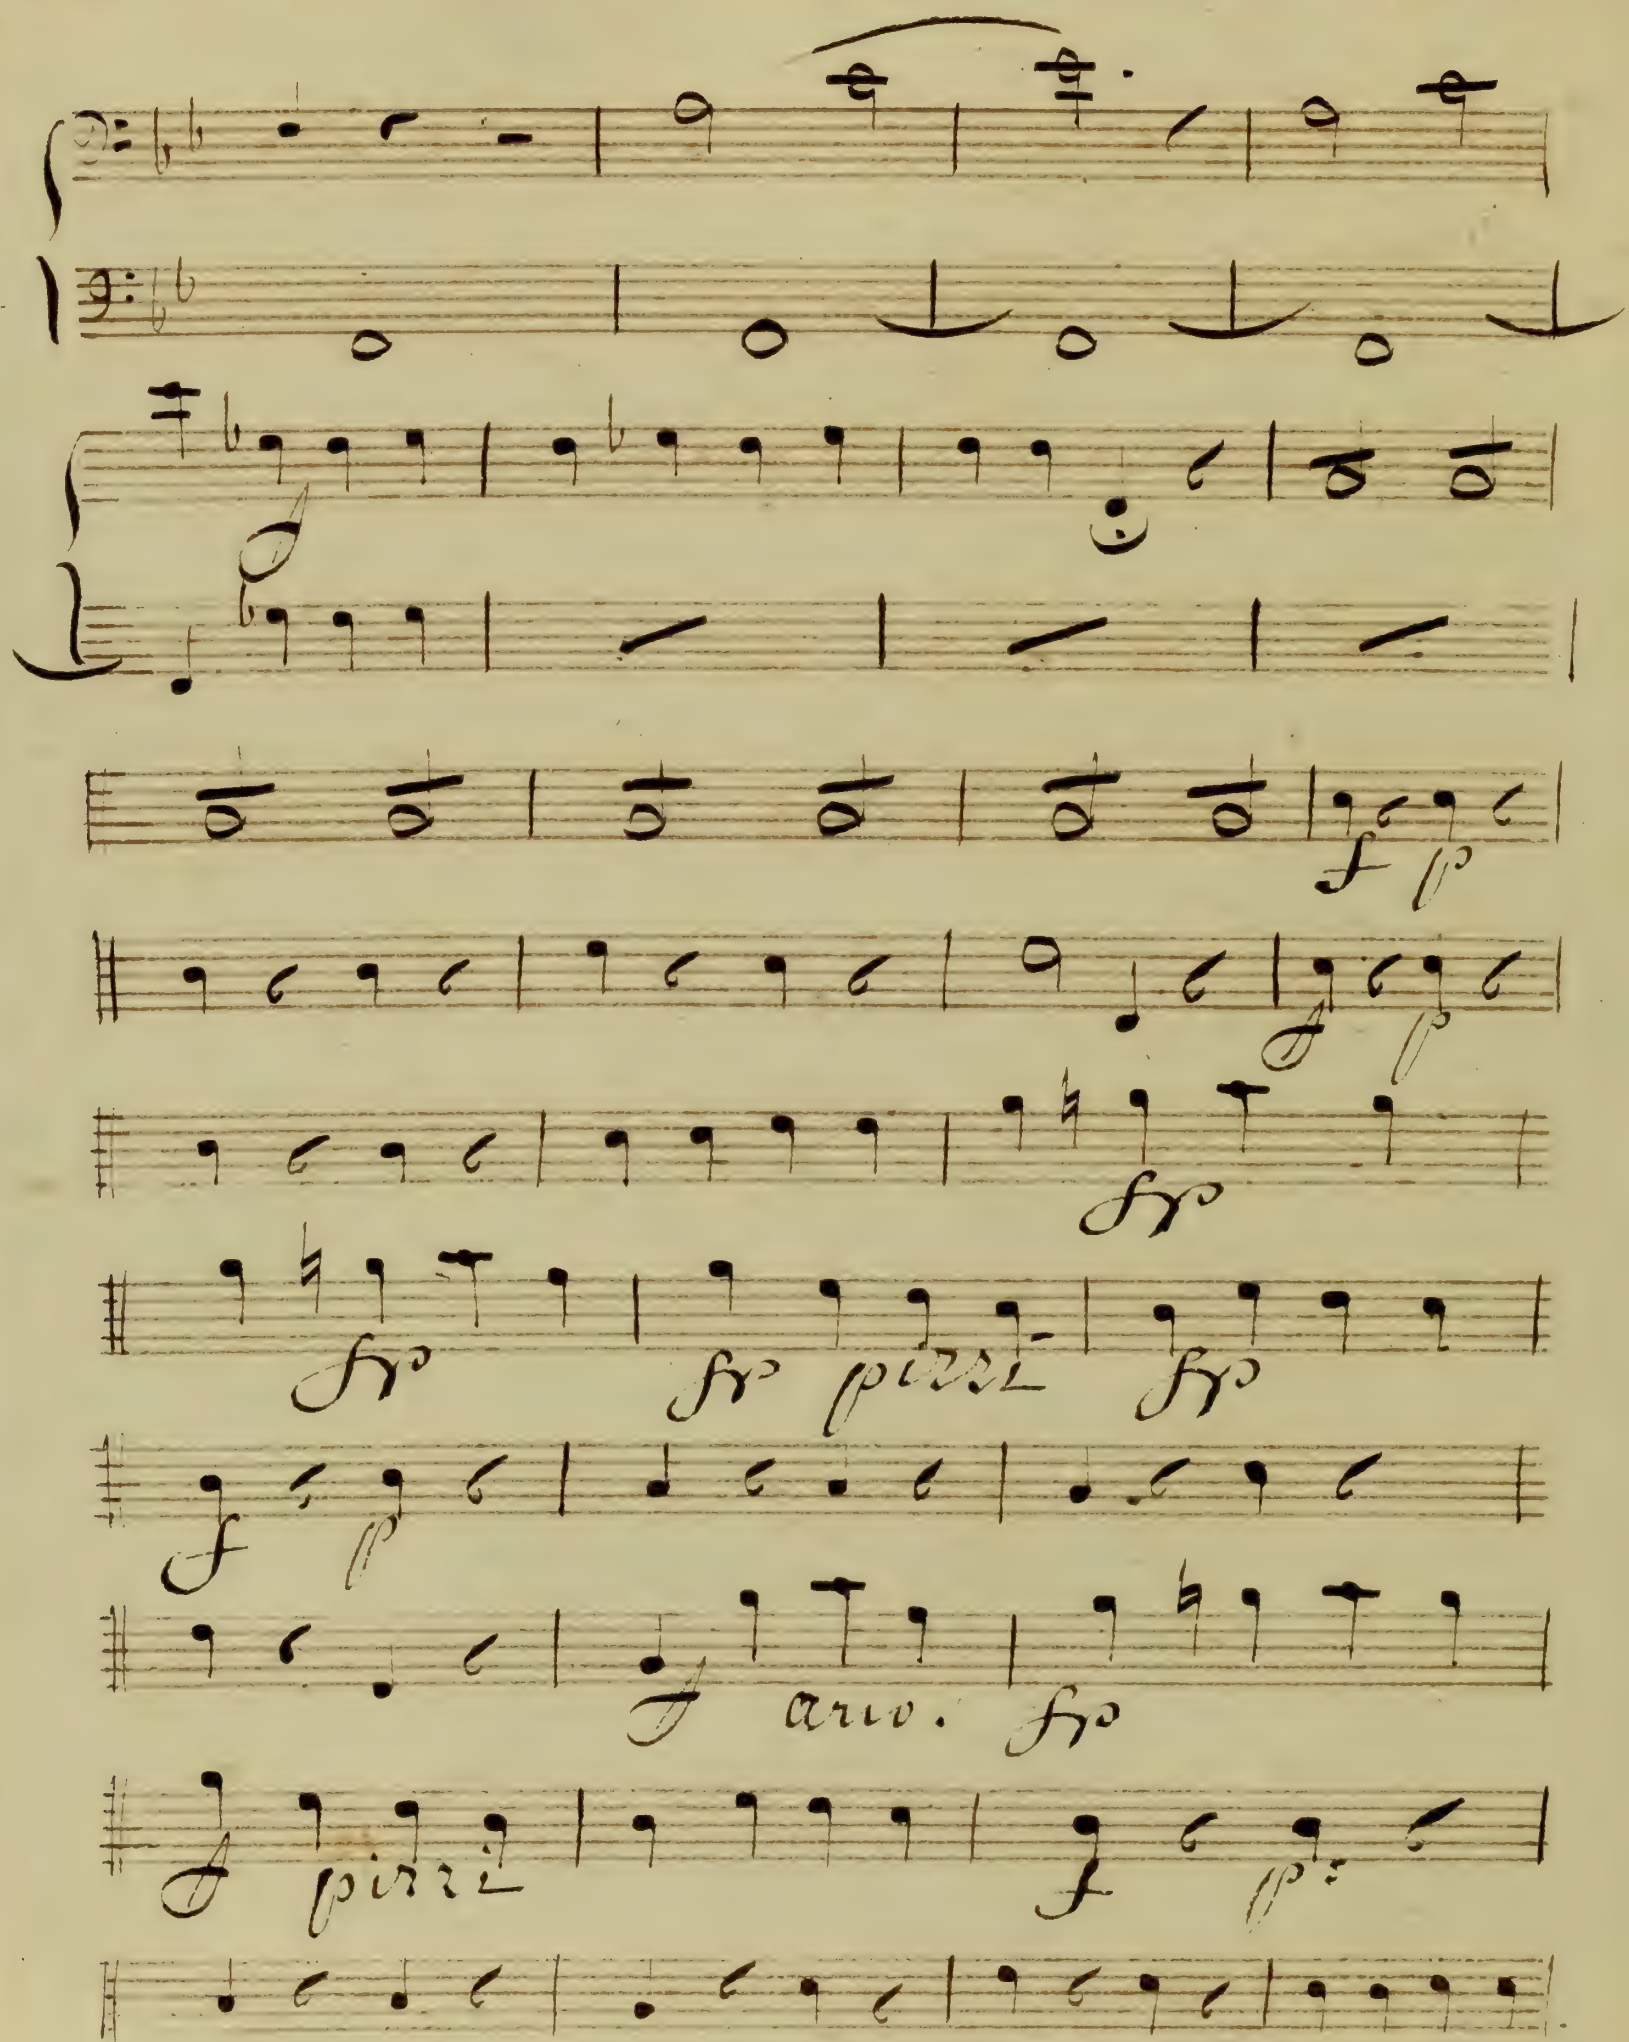 f
f p
f p
fp
fp fp pizzi fp
f p
f arco. fp
f pizzi f p: